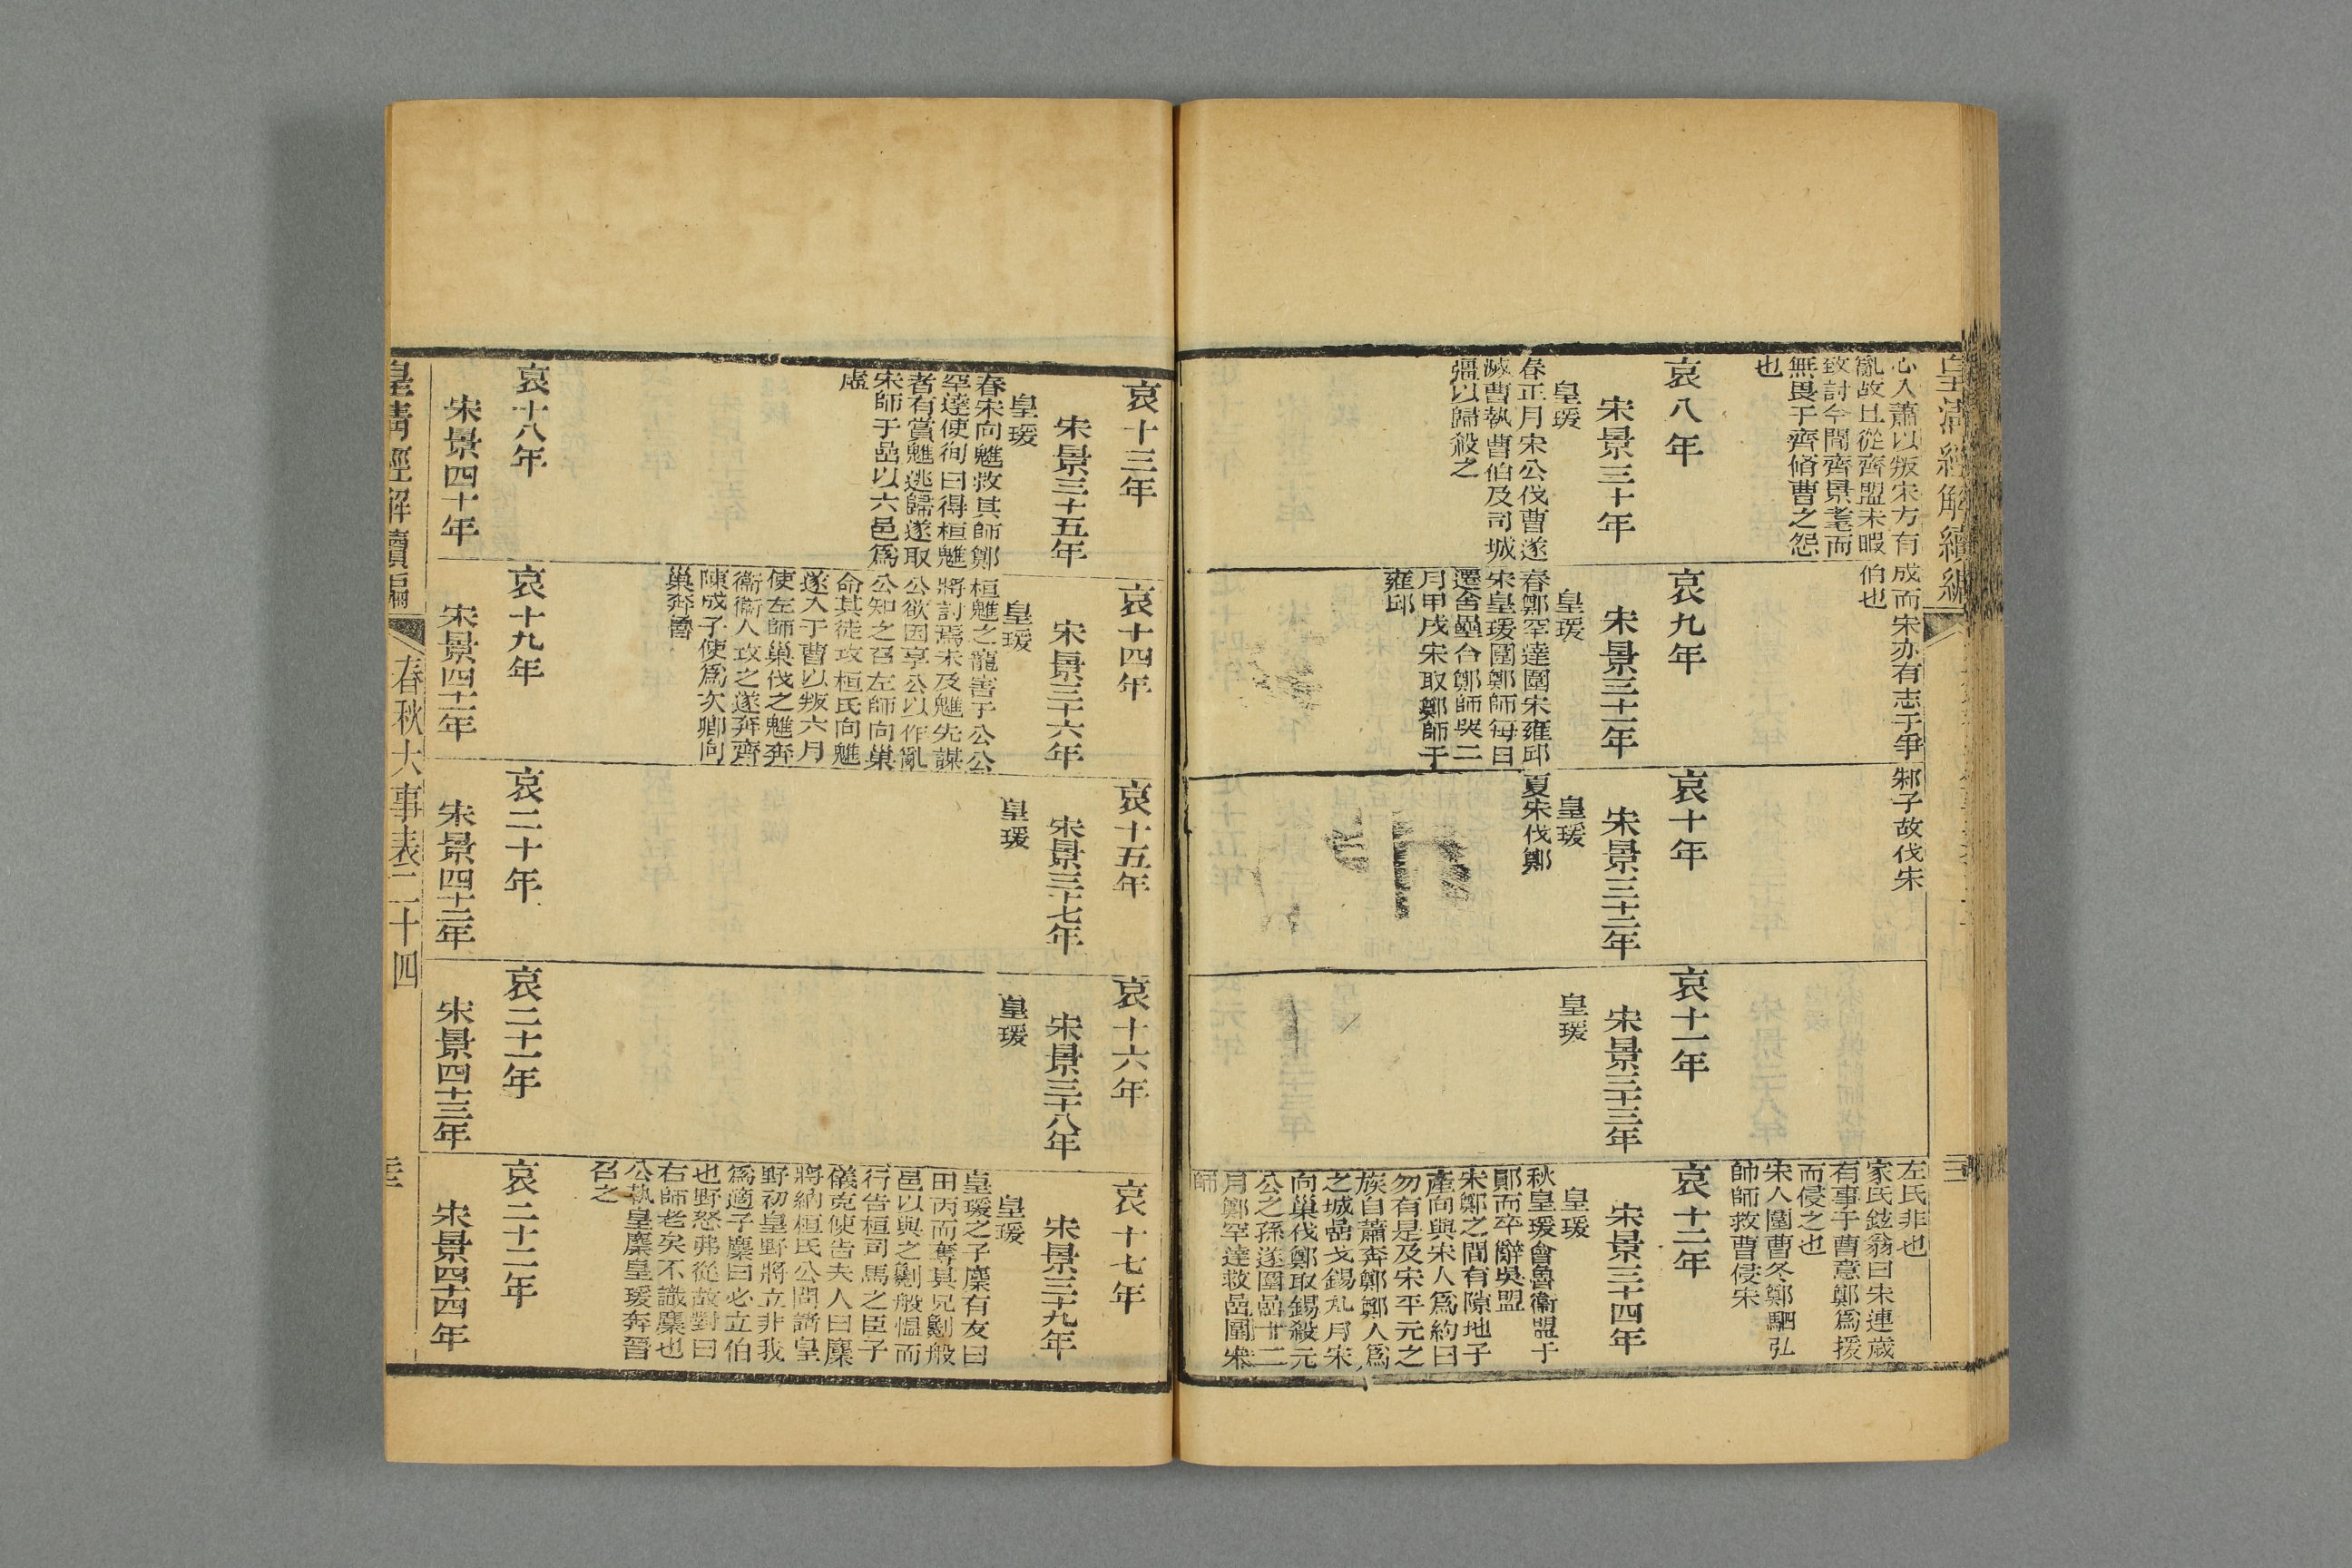 皇清經解續編
心入蕭以叛宋方有
亂故且從齊盟未暇
致討今聞齊景耄而
無畏于齊脩曹之怨
也
成而宋亦有志于爭
伯也
邾子故伐宋
左氏非也
家氏鉉翁曰宋連歲
有事于曹意鄭爲援
而侵之也
宋人圍曹冬鄭駟弘
帥師救曹侵宋
哀八年
宋景三十年
皇瑗
春正月宋公伐曹遂
滅曹執曹伯及司城
彊以歸殺之
哀九年
宋景三十一年
皇瑗
春鄭罕達圍宋雍邱
宋皇瑗圍鄭師每日
遷舍壘合鄭師哭二
月甲戌宋取鄭師于
雍邱
哀十年
宋景三十二年
皇瑗
夏宋伐鄭
哀十一年
宋景三十三年
皇瑗
哀十二年
宋景三十四年
皇瑗
秋皇瑗會魯衞盟于
鄖而卒辭吳盟
宋鄭之間有隙地子
產向與宋人爲約曰
勿有是及宋平元之
族自蕭奔鄭鄭人爲
之城嵒戈錫九月宋
向巢伐鄭取錫殺元
公之孫遂圍嵒十二
月鄭罕達救嵒圍宋
師
哀十三年
宋景三十五年
皇瑗
春宋向魋救其師鄭
罕達使徇曰得桓魋
者有賞魋逃歸遂取
宋師于嵒以六邑爲
虛
哀十四年
宋景三十六年
皇瑗
桓魋之寵害于公公
將討焉未及魋先謀
公欲因享公以作亂
公知之召左師向巢
命其徒攻桓氏向魋
遂入于曹以叛六月
使左師巢伐之魋奔
衞衞人攻之遂奔齊
陳成子使爲次卿向
巢奔魯
哀十五年
宋景三十七年
皇瑗
哀十六年
宋景三十八年
皇瑗
哀十七年
宋景三十九年
皇瑗
皇瑗之子麇有友曰
田丙而奪其兄劖般
邑以與之劖般慍而
行告桓司馬之臣子
儀克使告夫人曰麇
將納桓氏公問諸皇
野初皇野將立非我
爲適子麇曰必立伯
也野怒弗從故對曰
右師老矣不識麇也
公執皇麇皇瑗奔晉
召之
哀十八年
宋景四十年
哀十九年
宋景四十一年
哀二十年
宋景四十二年
哀二十一年
宋景四十三年
哀二十二年
宋景四十四年
皇清經解續編
春秋大事表二十四